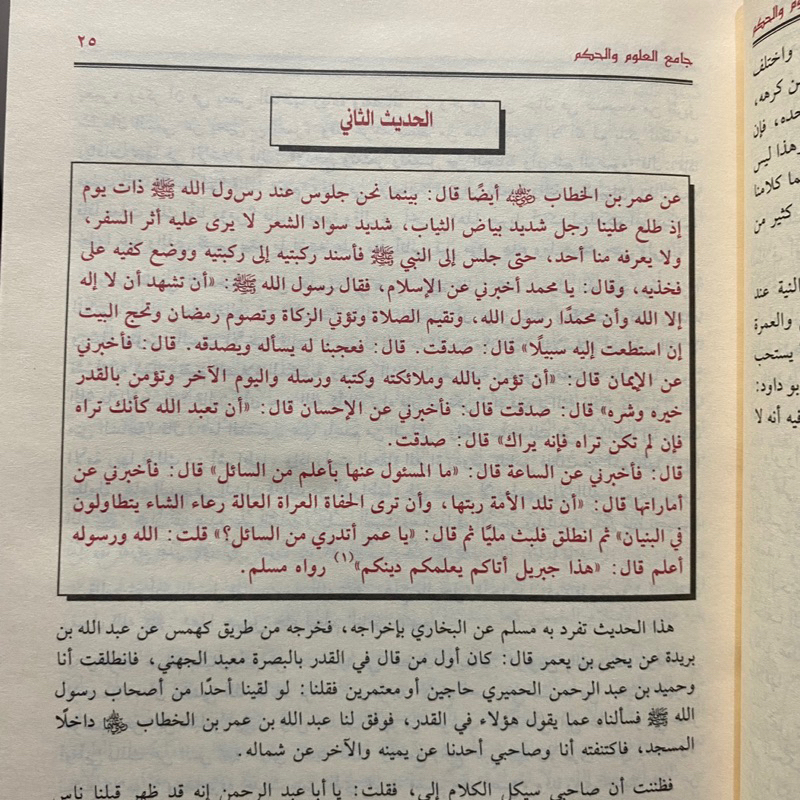 جامع العلوم والحكم
٢٥
الحديث الثاني
عن عمر بن الخطاب ﵁ أيضًا قال: بينما نحن جلوس عند رسول الله ﷺ ذات يوم
إذ طلع علينا رجل شديد بياض الثياب، شديد سواد الشعر لا يرى عليه أثر السفر،
ولا يعرفه منا أحد، حتى جلس إلى النبي ﷺ فأسند ركبتيه إلى ركبتيه ووضع كفيه على
فخذيه، وقال: يا محمد أخبرني عن الإسلام، فقال رسول الله ﷺ: «أن تشهد أن لا إله
إلا الله وأن محمدًا رسول الله، وتقيم الصلاة وتؤتي الزكاة وتصوم رمضان وتحج البيت
إن استطعت إليه سبيلًا» قال: صدقت. قال: فعجبنا له يسأله ويصدقه. قال: فأخبرني
عن الإيمان قال: «أن تؤمن بالله وملائكته وكتبه ورسله واليوم الآخر وتؤمن بالقدر
خيره وشره» قال: صدقت قال: فأخبرني عن الإحسان قال: «أن تعبد الله كأنك تراه
فإن لم تكن تراه فإنه يراك» قال: صدقت.
قال: فأخبرني عن الساعة قال: «ما المسئول عنها بأعلم من السائل» قال: فأخبرني عن
أماراتها قال: «أن تلد الأمة ربتها، وأن ترى الحفاة العراة العالة رعاء الشاء يتطاولون
في البنيان» ثم انطلق فلبث مليًا ثم قال: «يا عمر أتدري من السائل؟» قلت: الله ورسوله
أعلم قال: «هذا جبريل أتاكم يعلمكم دينكم»(١) رواه مسلم.
هذا الحديث تفرد به مسلم عن البخاري بإخراجه، فخرجه من طريق كهمس عن عبد الله بن
بريدة عن يحيى بن يعمر قال: كان أول من قال في القدر بالبصرة معبد الجهني، فانطلقت أنا
وحميد بن عبد الرحمن الحميري حاجين أو معتمرين فقلنا: لو لقينا أحدًا من أصحاب رسول
الله ﷺ فسألناه عما يقول هؤلاء في القدر، فوفق لنا عبد الله بن عمر بن الخطاب ﵄ داخلًا
المسجد، فاكتنفته أنا وصاحبي أحدنا عن يمينه والآخر عن شماله.
فظننت أن صاحبي سيكل الكلام إلي، فقلت: يا أبا عبد الرحمن إنه قد ظهر قبلنا ناس
واختلف
من كرهه،
فإن
هذا ليس
كلامنا
كثير من
النية عند
والعمرة
يستحب
بو داود:
فيه أنه لا